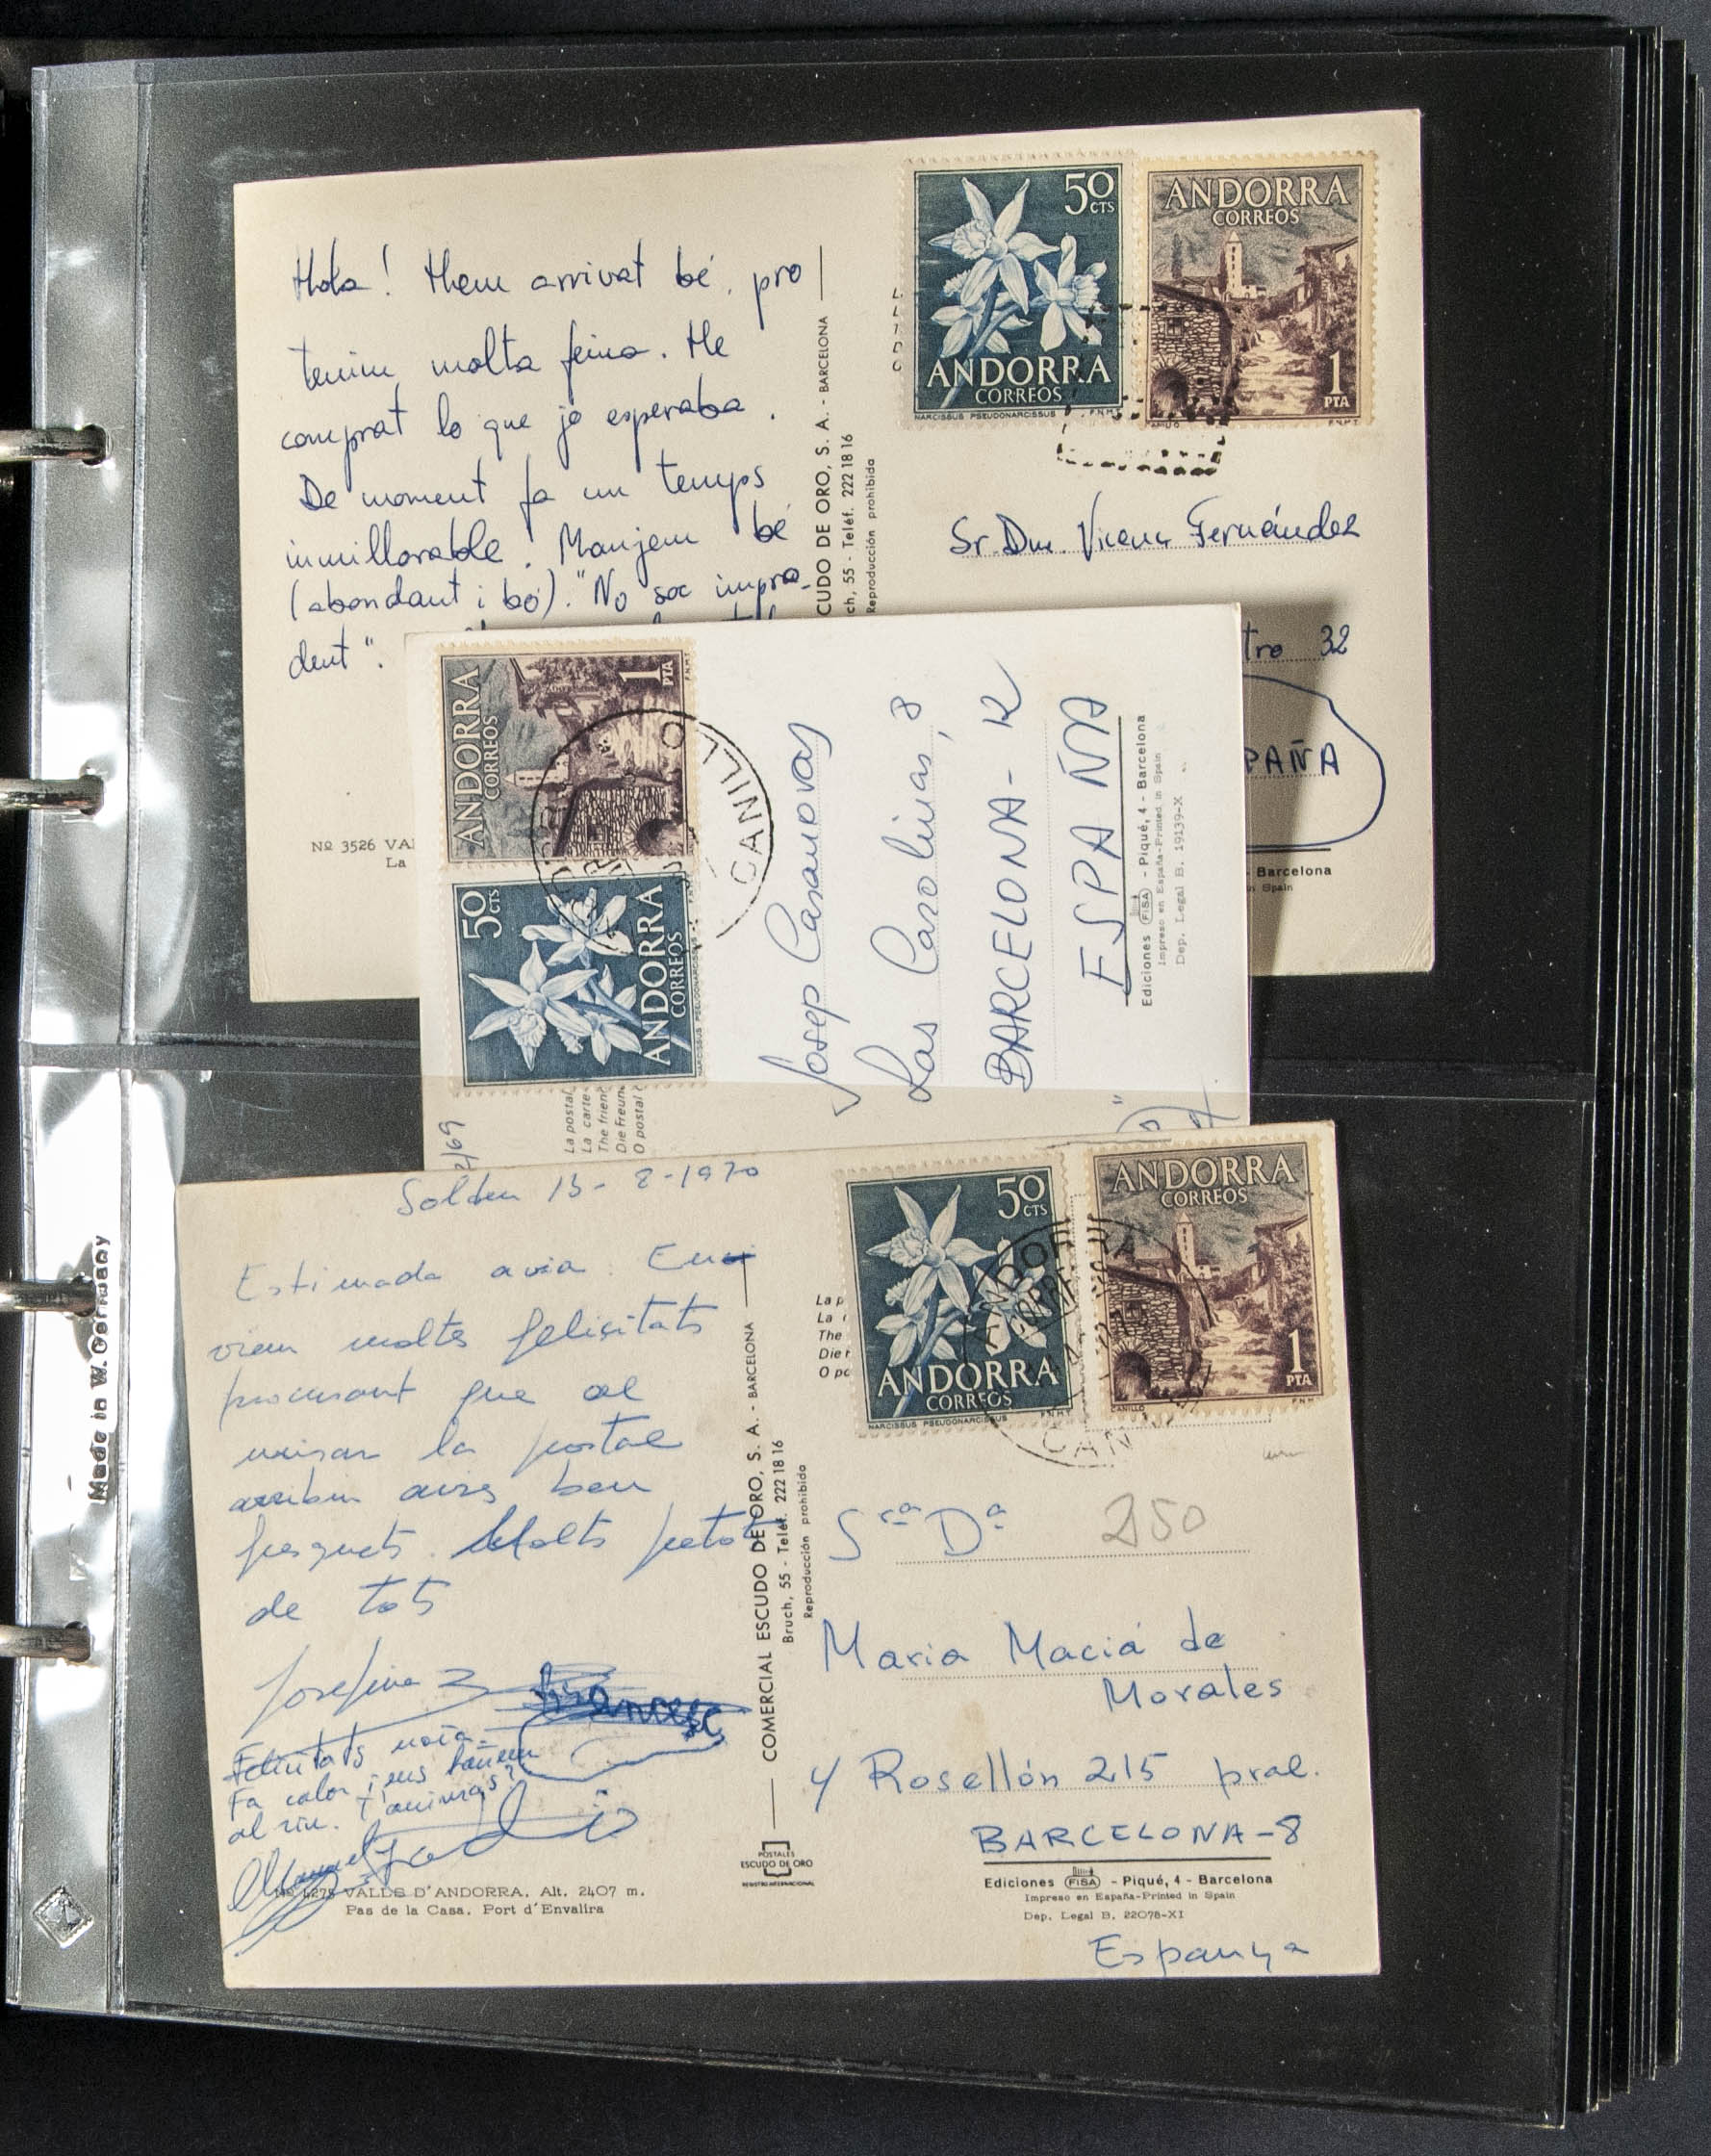 Hola! Hem arrivat bé, pro
tenim molta feina. He
comprat lo que jo esperaba.
De moment fa un temps
inmillorable. Manjem bé
(abondant i bó). "No soc impru-
dent".
50
CTS
ANDORRA
CORREOS
NARCISSUS PSEUDONARCISSUS F.N.M.T.
ANDORRA
CORREOS
1
PTA
F.N.M.T.
CUDO DE ORO, S. A. - BARCELONA
ch, 55 - Teléf. 222 18 16
Reproducción prohibida
Sr. Dn. Vicenç Fernández
tro 32
PAÑA
Barcelona
in Spain
Nº 3526 VAL
La
ANDORRA
CORREOS
1
PTA
50
CTS
ANDORRA
CORREOS
CANILLO
La postal
La carte
The frien
Die Freun
O postal
Josep Casanovas
Las Carolinas, 8
BARCELONA-12
ESPAÑA
Ediciones FISA - Piqué, 4 - Barcelona
Impreso en España-Printed in Spain
Dep. Legal B. 19139-X
/69
Soldeu 15-8-1970
Estimada avia. Enviem
moltes felicitats
procurant que al
mirar la postal
arribin aires ben
fresquets. Molts petons
de tots
Josefina
Francesc
Felicitats maca.
Fa calor i ens banyem
al riu. T'animas?
Nº 4275 VALLS D'ANDORRA. Alt. 2407 m.
Pas de la Casa. Port d'Envalira
COMERCIAL ESCUDO DE ORO, S. A. - BARCELONA
Bruch, 55 - Teléf. 222 18 16
Reproducción prohibida
POSTALES
ESCUDO DE ORO
REGISTRO INTERNACIONAL
La p
La
The
Die
O po
50
CTS
ANDORRA
CORREOS
NARCISSUS PSEUDONARCISSUS F.N.M.T.
ANDORRA
CORREOS
1
PTA
CANILLO F.N.M.T.
CAN
Sra Da
250
Maria Maciá de
Morales
Rosellón 215 pral.
BARCELONA-8
Ediciones FISA - Piqué, 4 - Barcelona
Impreso en España-Printed in Spain
Dep. Legal B. 22078-XI
Espanya
Made in W. Germany